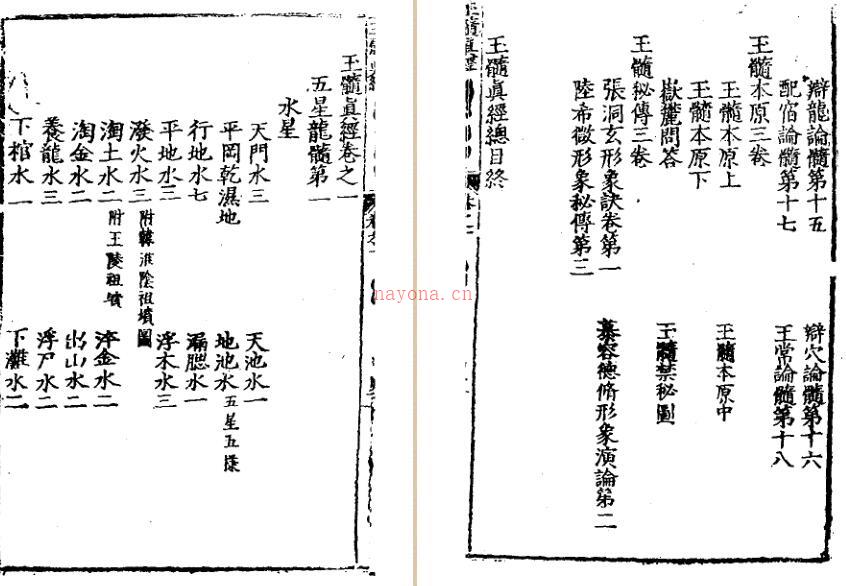 辯龍論髓第十五 辯穴論髓第十六
配宿論髓第十七 王常論髓第十八
玉髓本原三卷
玉髓本原上 玉髓本原中
玉髓本原下
嶽麓問答 玉髓禁秘圖
玉髓秘傳三卷
張洞玄形象訣卷第一 慕容德脩形象演論第二
陸希微形象秘傳第三
玉髓眞經總目終
玉髓眞經
玉髓眞經卷之一
五星龍髓第一
水星
天門水三 天池水一
平岡乾濕地 地池水五星五㨾
行地水七 漏腮水一
平地水三 浮木水三
潑火水三附韓淮陰祖墳圖
淘土水二附王陵祖墳 淬金水二
淘金水二 出山水二
養龍水三 浮尸水二
下棺水一 下灘水二
nayona.cn